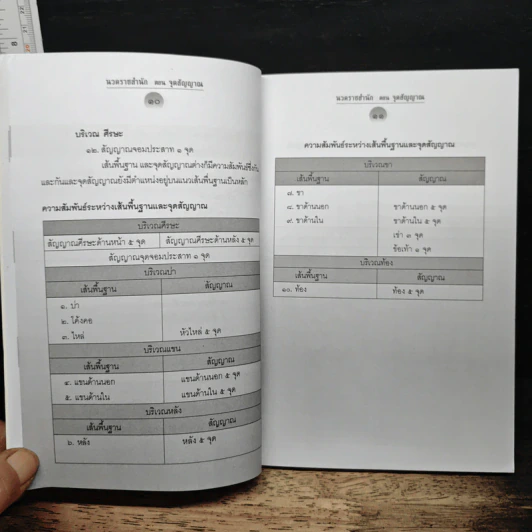 นวดราชสำนัก ตอน จุดสัญญาณ
๑๐
บริเวณ ศีรษะ
๑๒. สัญญาณจอมประสาท ๑ จุด
เส้นพื้นฐาน และจุดสัญญาณต่างก็มีความสัมพันธ์ซึ่งกัน
และกันและจุดสัญญาณยังมีตำแหน่งอยู่บนแนวเส้นพื้นฐานเป็นหลัก
ความสัมพันธ์ระหว่างเส้นพื้นฐานและจุดสัญญาณ
บริเวณศีรษะ
สัญญาณศีรษะด้านหน้า ๕ จุด สัญญาณศีรษะด้านหลัง ๕ จุด
สัญญาณจุดจอมประสาท ๑ จุด
บริเวณบ่า
เส้นพื้นฐาน สัญญาณ
๑. บ่า
๒. โค้งคอ
๓. ไหล่ หัวไหล่ ๕ จุด
บริเวณแขน
เส้นพื้นฐาน สัญญาณ
๔. แขนด้านนอก แขนด้านนอก ๕ จุด
๕. แขนด้านใน แขนด้านใน ๕ จุด
บริเวณหลัง
เส้นพื้นฐาน สัญญาณ
๖. หลัง หลัง ๕ จุด
นวดราชสำนัก ตอน จุดสัญญาณ
๑๑
ความสัมพันธ์ระหว่างเส้นพื้นฐานและจุดสัญญาณ
บริเวณขา
เส้นพื้นฐาน สัญญาณ
๗. ขา
๘. ขาด้านนอก ขาด้านนอก ๕ จุด
๙. ขาด้านใน ขาด้านใน ๕ จุด
เข่า ๓ จุด
ข้อเท้า ๑ จุด
บริเวณท้อง
เส้นพื้นฐาน สัญญาณ
๑๐. ท้อง ท้อง ๕ จุด